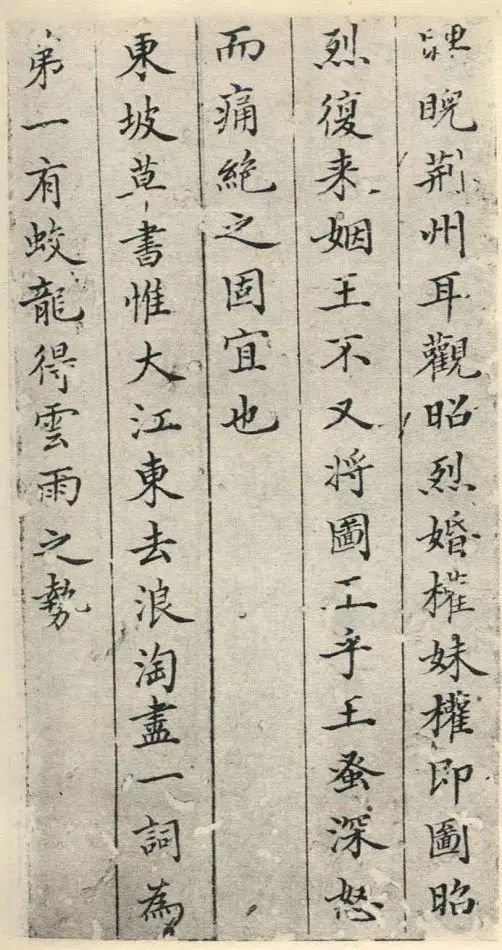 睥睨荊州耳觀昭烈婚權妹權即圖昭
烈復来姻王不又将圖工乎王蚤深怒
而痛絶之固宜也
東坡草書惟大江東去浪淘盡一詞為
弟一有蛟龍得雲雨之勢